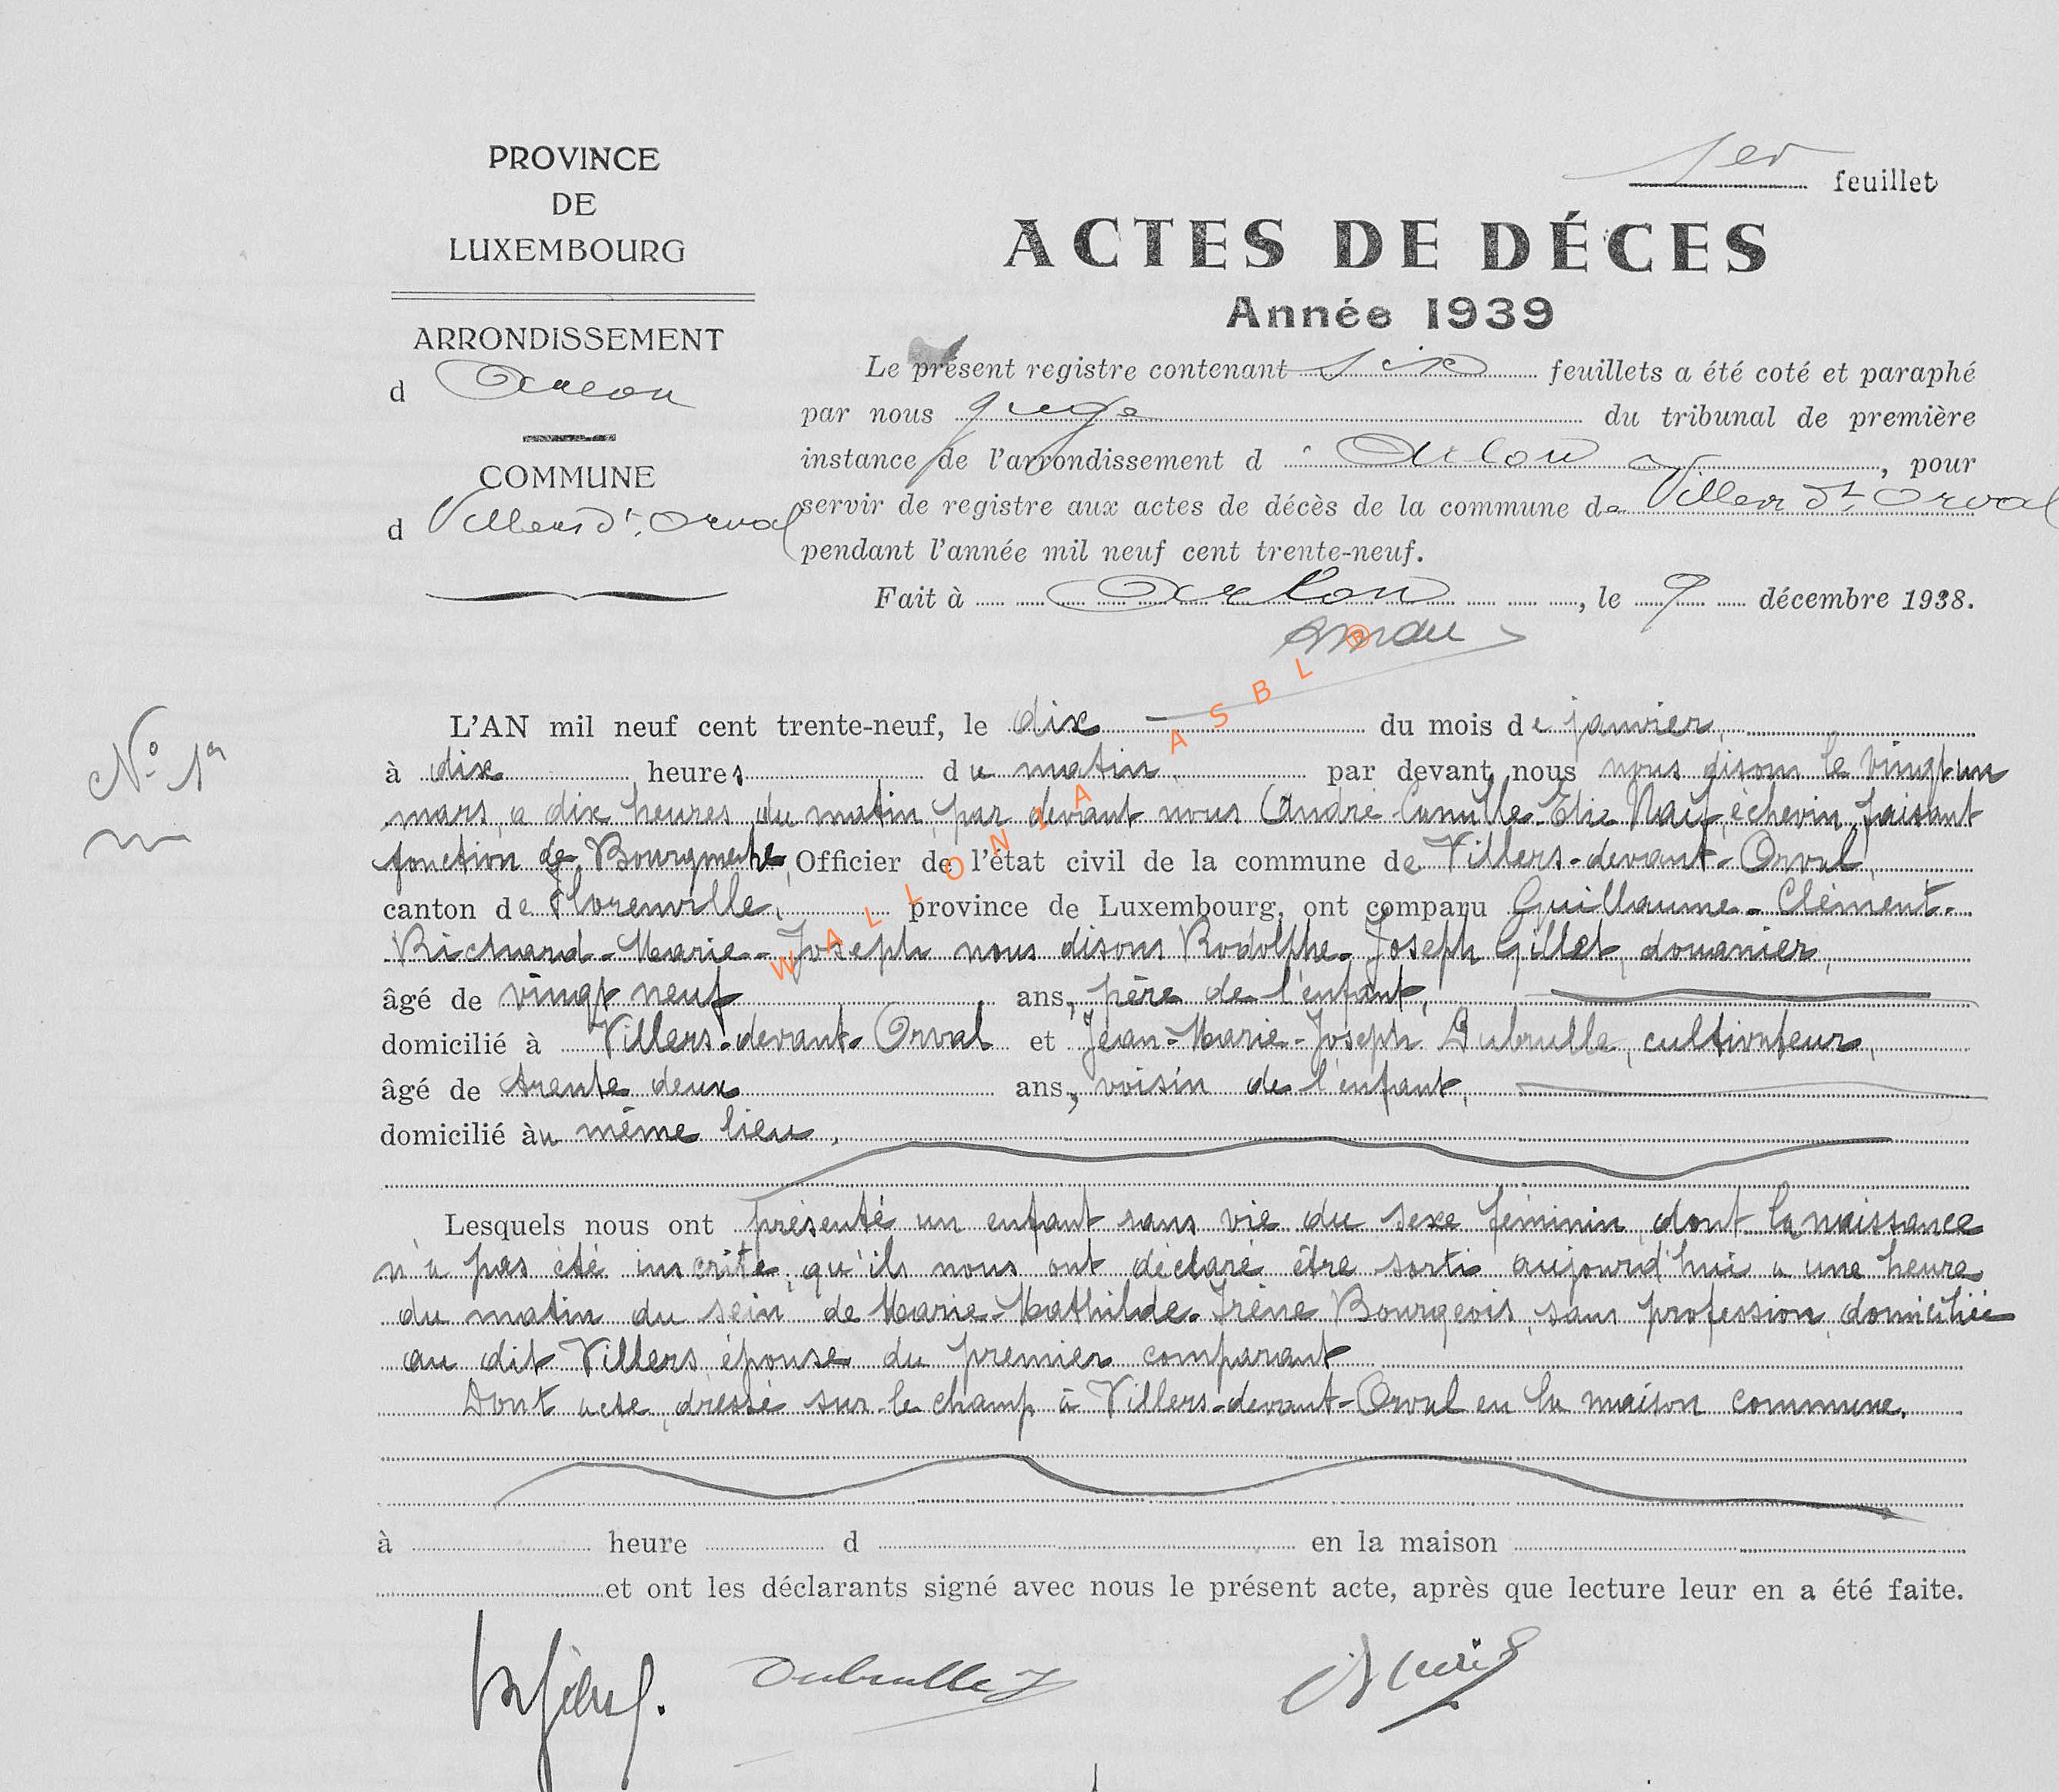 1er feuillet
PROVINCE
DE
LUXEMBOURG
ARRONDISSEMENT
d Arlon
COMMUNE
d Villers dt Orval
ACTES DE DÉCES
Année 1939
Le présent registre contenant six feuillets a été coté et paraphé
par nous juge du tribunal de première
instance de l'arrondissement d' Arlon, pour
servir de registre aux actes de décès de la commune de Villers dt Orval
pendant l'année mil neuf cent trente-neuf.
Fait à Arlon, le 9 décembre 1938.
No 1er
L'AN mil neuf cent trente-neuf, le dix du mois de janvier,
à dix heures du matin, par devant nous nous disons le vingt un
mars, a dix heures du matin, par devant nous André-Camille-Elie Naif, échevin faisant
fonction de Bourgmestre, Officier de l'état civil de la commune de Villers-devant-Orval,
canton de Florenville, province de Luxembourg, ont comparu Guillaume-Clément-
Richard-Marie-Joseph nous disons Rodolphe-Joseph Gillet, douanier,
âgé de vingt neuf ans, père de l'enfant,
domicilié à Villers-devant-Orval et Jean-Marie-Joseph Dubrulle, cultivateur,
âgé de trente deux ans, voisin de l'enfant,
domicilié au même lieu,
Lesquels nous ont présenté un enfant sans vie du sexe féminin, dont la naissance
n'a pas été inscrite, qu'ils nous ont déclaré être sorti aujourd'hui a une heure
du matin du sein de Marie-Mathilde-Irène Bourgeois, sans profession, domiciliée
au dit Villers, épouse du premier comparant
Dont acte, dressé sur-le champ à Villers-devant-Orval en la maison commune.
à heure d en la maison
et ont les déclarants signé avec nous le présent acte, après que lecture leur en a été faite.
Dubrulle J
WALLONIA ASBL ®